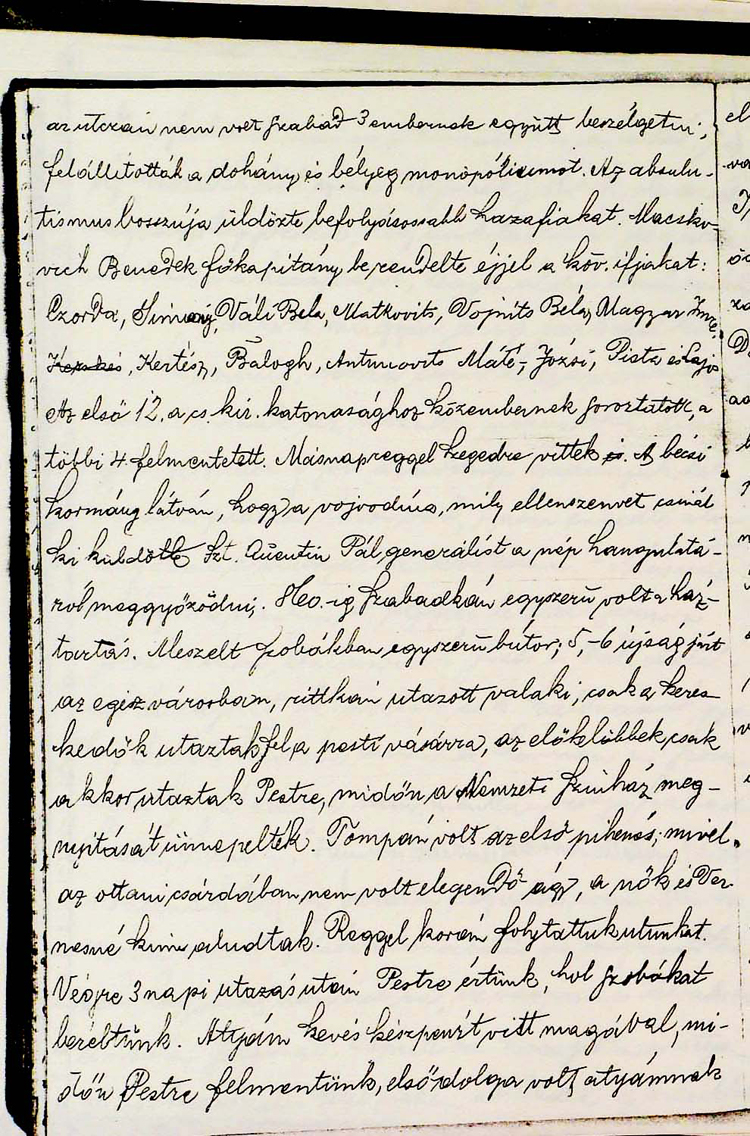 az utczán nem volt szabad 3 embernek együtt beszélgetni;
felállították a dohány és bélyeg monopóliumot. Az absolu-
tismus bosszúja üldözte befolyásosabb hazafiakat. Macsko-
vich Benedek főkapitány berendelte éjjel a köv. ifjakat:
Czorda, Váli Bela, Matkovits, Vojnits Béla, Magyar Imre,
Kertész, Balogh, Antunovits Máté, Józsi, Pista és Lajos
Az első 12. a cs. kir. katonasághoz közembernek soroztatott, a
többi 4 felmentetett. Másnap reggel Szegedre vitték. A bécsi
kormány látván, hogy a vojvodina, mily ellenszenvet csinál
ki küldött Szt. Quentin Pál generálist a nép hangulatá-
ról meggyőződni. -ig Szabadkán egyszerű volt a ház-
tartás. Meszelt szobákban egyszerű bútor; 5,-6 újság járt
az egész városban, rittkán utazott valaki, csak a keres
kedők utaztak fel a pesti vásárra, az előklöbbek csak
akkor utaztak Pestre, midőn a Nemzeti Szinház meg-
nyitását ünnepelték. Tompán volt az első pihenés; mivel
az ottani csárdában nem volt elegendő ágy, a nők és Ter
nesné kinn aludtak. Reggel korán folytattuk utunkat.
Végre 3 napi utazás után Pestre értünk, hol szobákat
béreltünk. Atyám kevés készpénzt vitt magával, mi-
dőn Pestre felmentünk, első dolga volt atyámnak